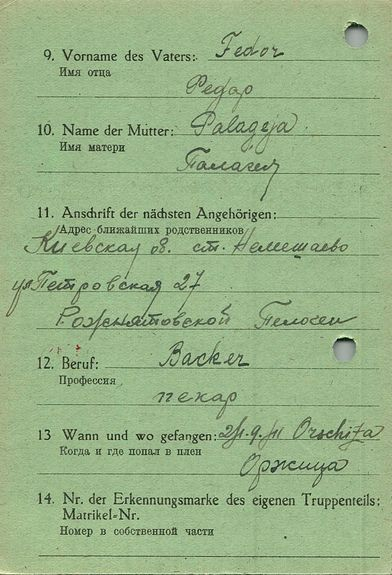 9. Vorname des Vaters: Fedor
Имя отца
Федор
10. Name der Mutter: Palageja
Имя матери
Палагея
11. Anschrift der nächsten Angehörigen:
Адрес ближайших родственников
Киевская об. ст. Немешаево
ул Петровская 27
Рожнятовской
12. Beruf: Backer
Профессия
пекар
13 Wann und wo gefangen: Orschiza
Когда и где попал в плен
Оржица
14. Nr. der Erkennungsmarke des eigenen Truppenteils:
Matrikel-Nr.
Номер в собственной части